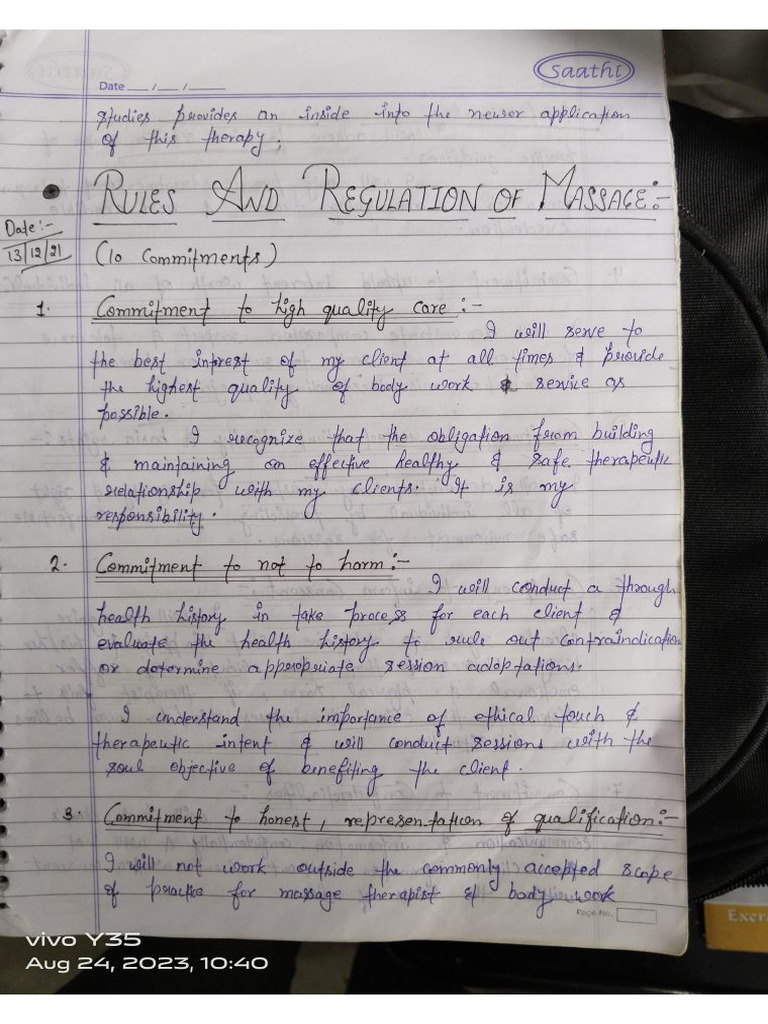 saathi
Date __ / __ / ____
studies provides an inside into the newer application
of this therapy;
RULES AND REGULATION OF MASSAGE:-
Date:-
13/12/21
(10 Commitments)
1. Commitment to high quality care :-
I will serve to
the best intprest of my client at all times & provide
the highest quality of body work & service as
possible.
I recognize that the obligation from building
& maintaining an effective healthy & safe therapeutic
relationship with my clients. It is my
responsibility.
2. Commitment to not to harm:-
I will conduct a through
health history in take process for each client &
evaluate the health history to rule out contraindication
or determine appropriate session adoptations.
I understand the importance of ethical touch &
therapeutic intent & will conduct sessions with the
soul objective of benefiting the client.
3. Commitment to honest, representation of qualification:-
I will not work outside the commonly accepted scope
of practice for massage therapist & body work
Page No.
Excer
vivo Y35
Aug 24, 2023, 10:40